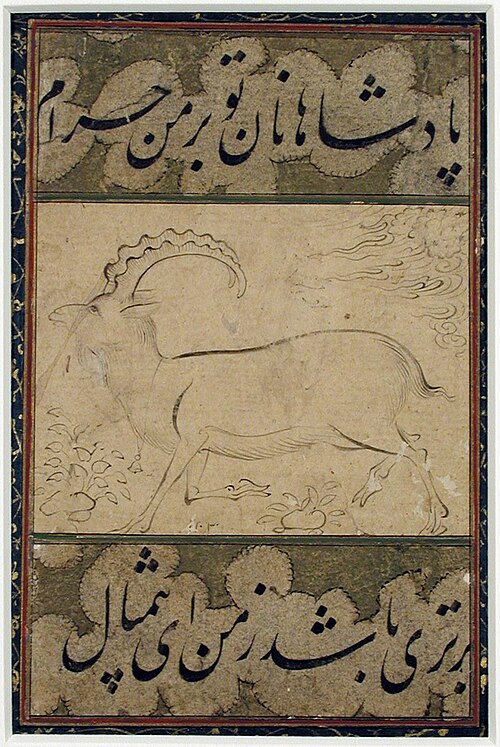 پادشاها نان تو بر من حرام
برتری باشد ز من ای بیمثال